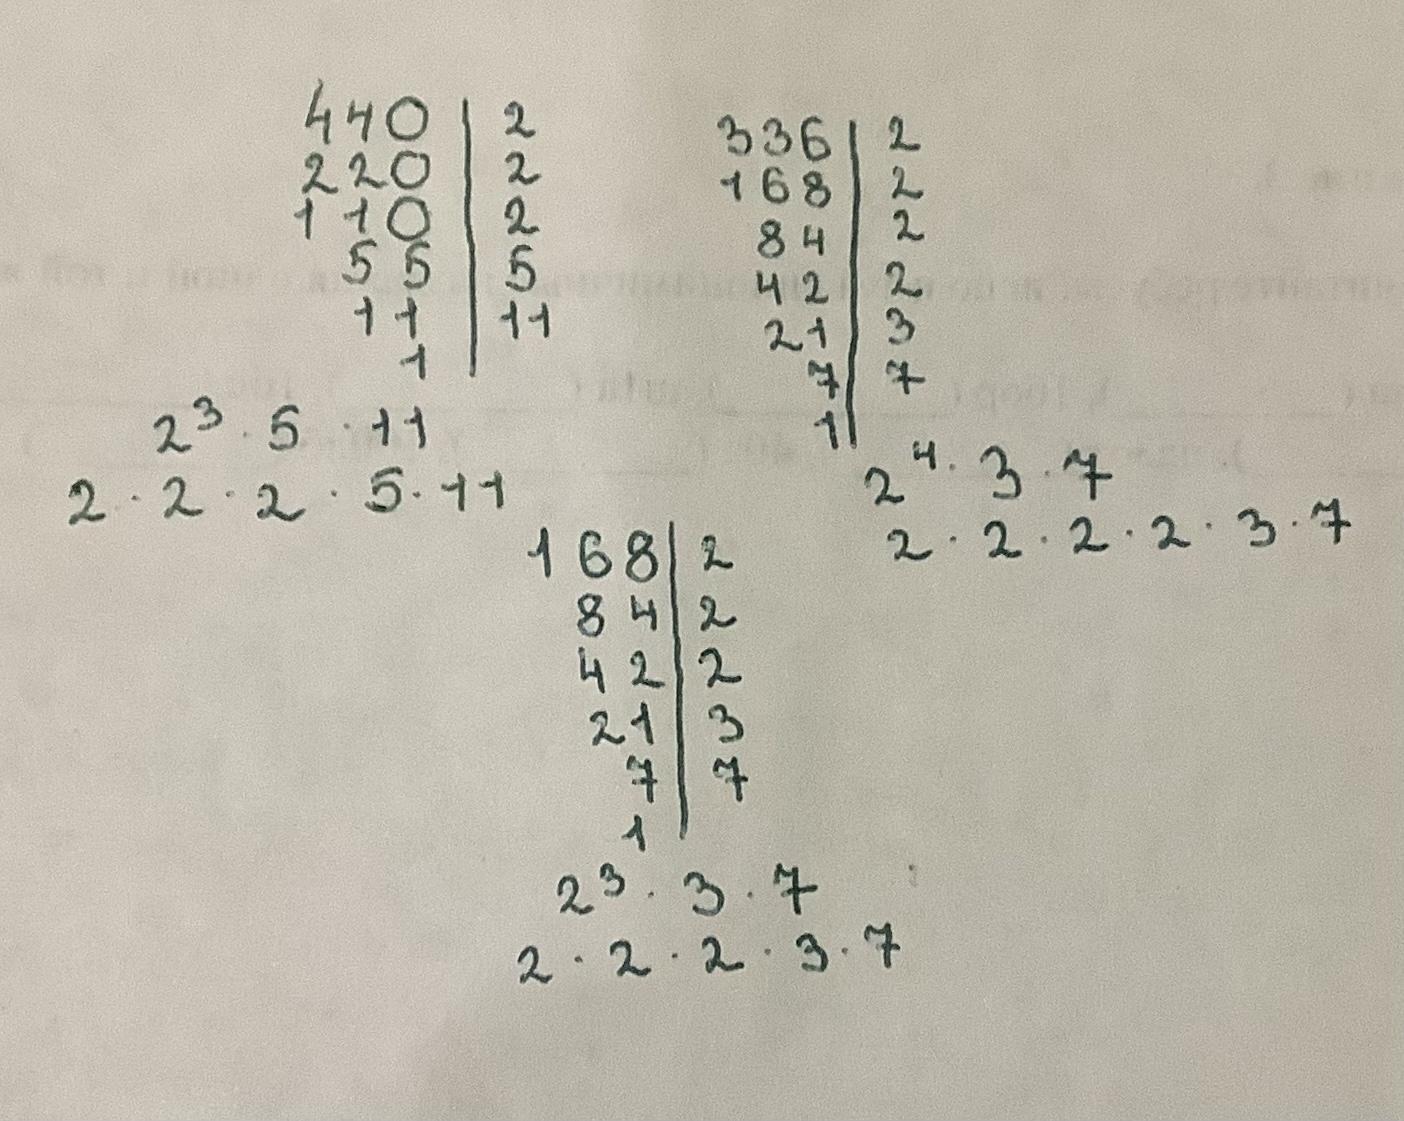 440 | 2
220 | 2
110 | 2
55 | 5
11 | 11
1 |
2³ · 5 · 11
2 · 2 · 2 · 5 · 11
336 | 2
168 | 2
84 | 2
42 | 2
21 | 3
7 | 7
1 |
2⁴ · 3 · 7
2 · 2 · 2 · 2 · 3 · 7
168 | 2
84 | 2
42 | 2
21 | 3
7 | 7
1 |
2³ · 3 · 7
2 · 2 · 2 · 3 · 7